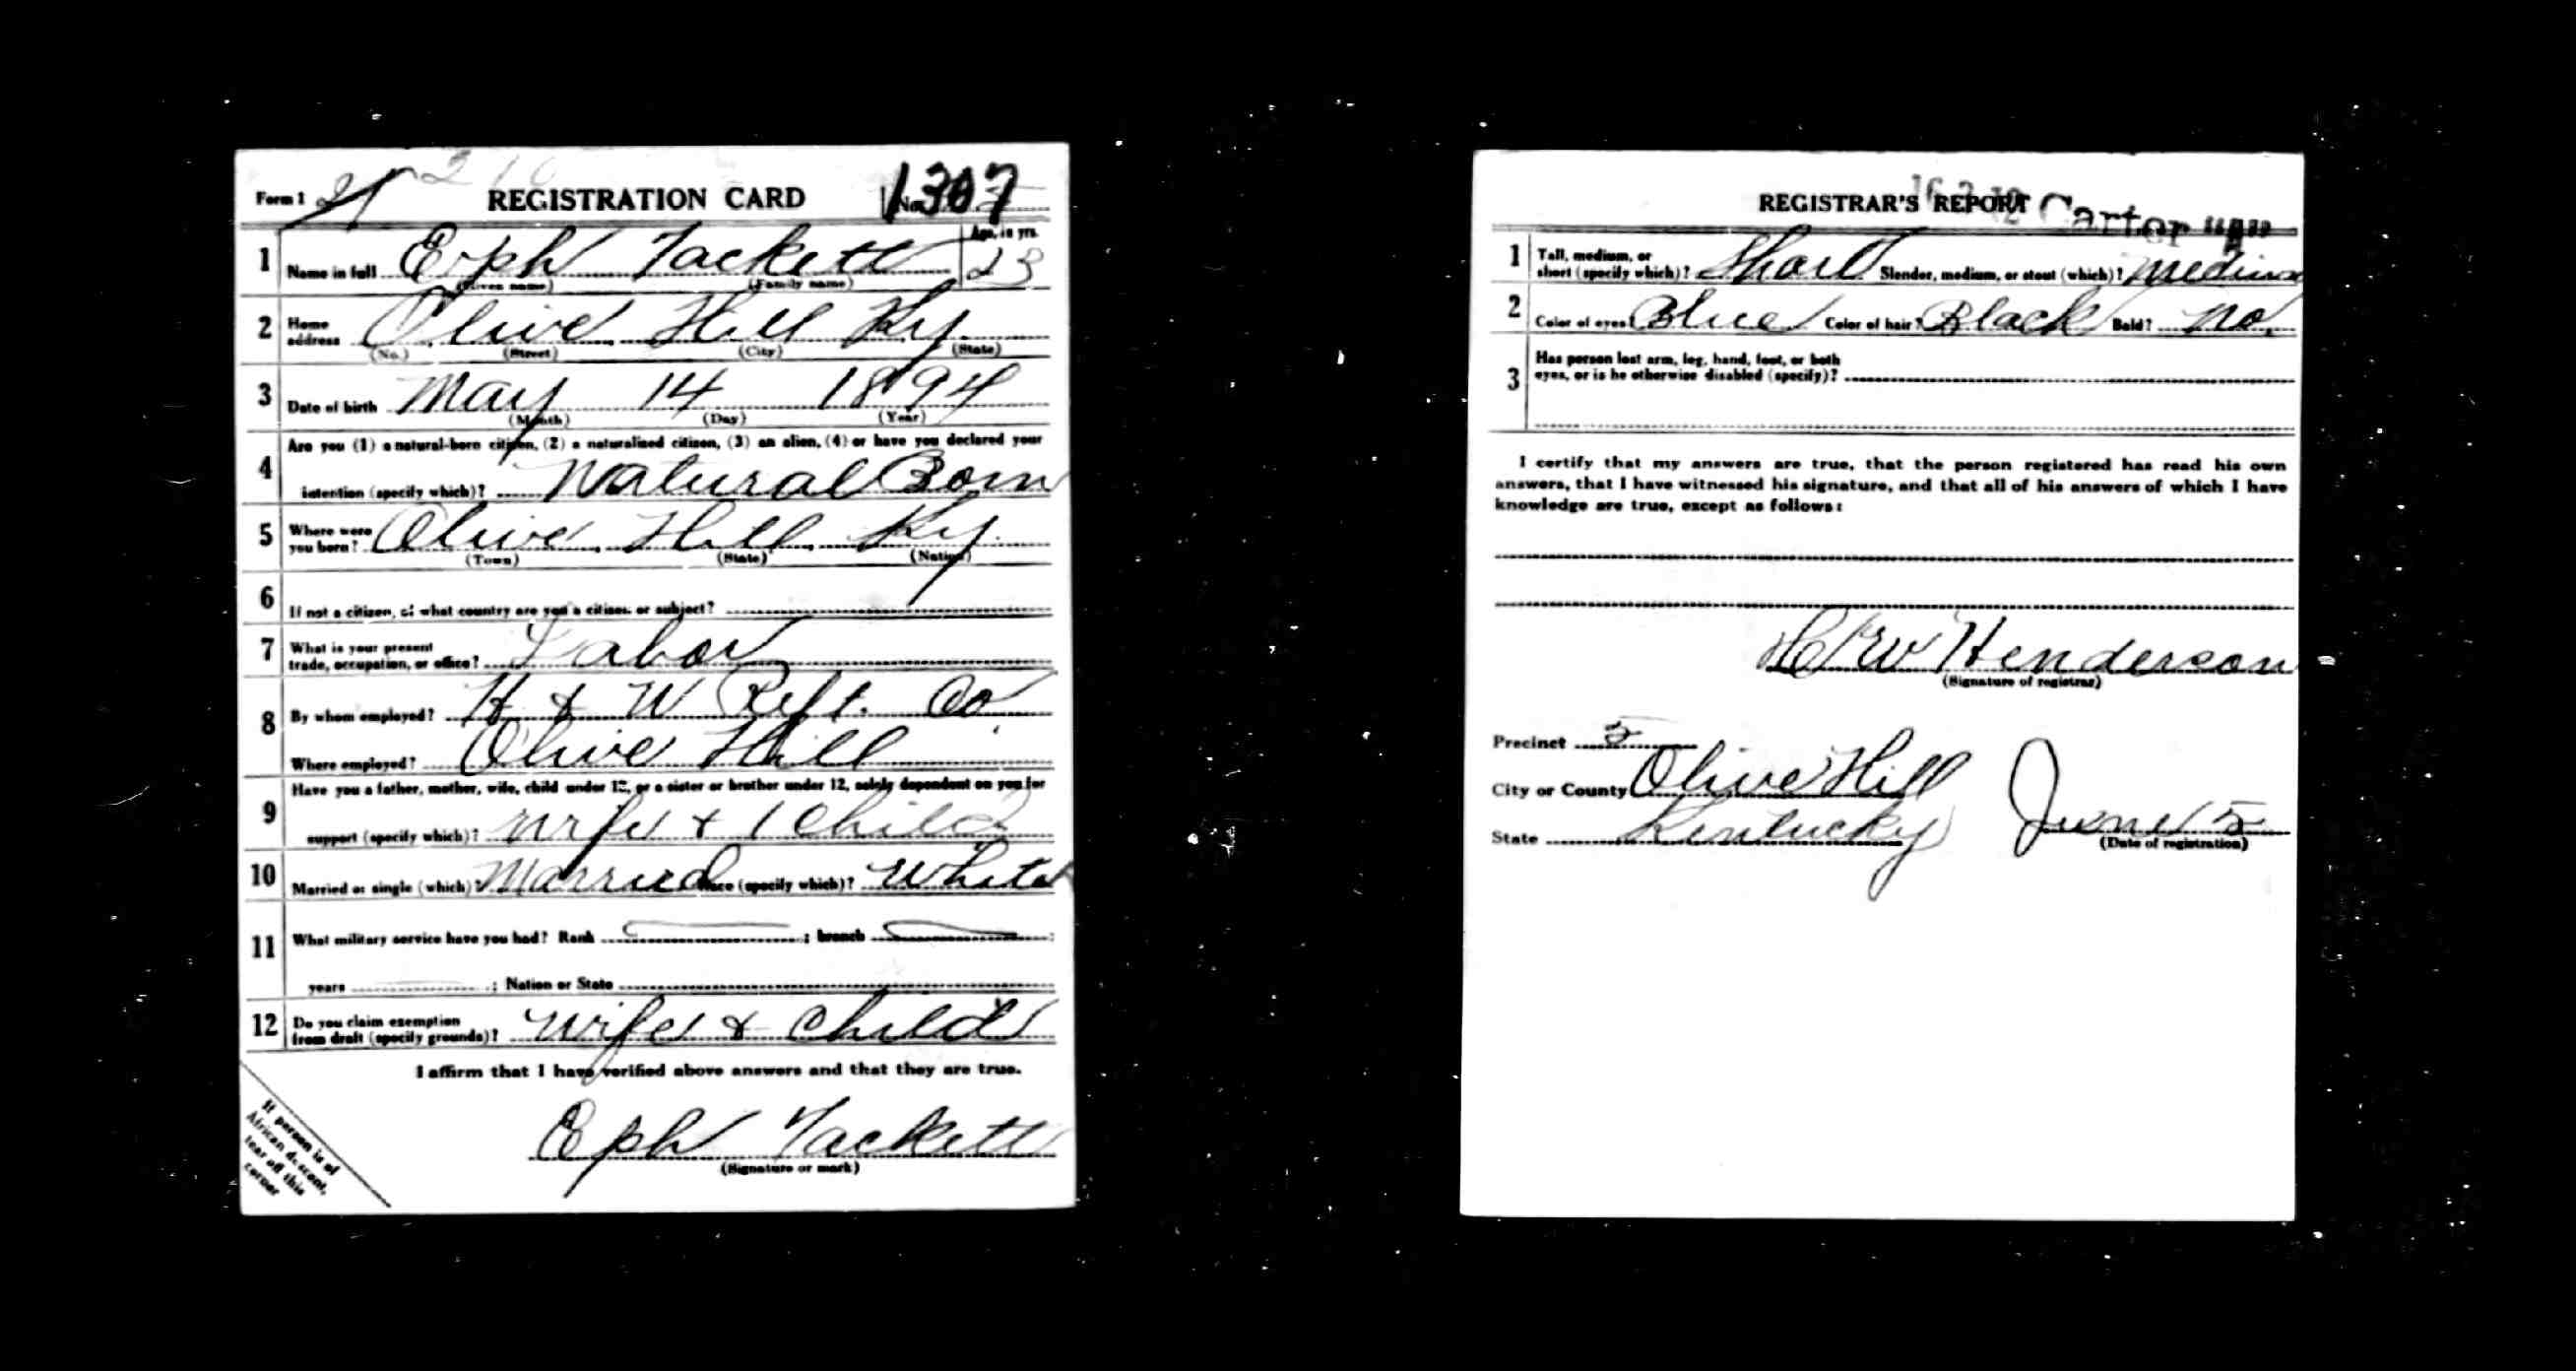 Form 1 REGISTRATION CARD No. 1307
1 Name in full Eph Tackett Age, in yrs. 23
(Given name) (Family name)
2 Home address Olive Hill Ky.
(No.) (Street) (City) (State)
3 Date of birth May 14 1894
(Month) (Day) (Year)
Are you (1) a natural-born citizen, (2) a naturalized citizen, (3) an alien, (4) or have you declared your
4 intention (specify which)? Natural Born
5 Where were you born? Olive Hill Ky.
(Town) (State) (Nation)
6 If not a citizen, of what country are you a citizen or subject?
7 What is your present
trade, occupation, or office? Labor
8 By whom employed? H & W Reft. Co
Where employed? Olive Hill
Have you a father, mother, wife, child under 12, or a sister or brother under 12, solely dependent on you for
9 support (specify which)? Wife + 1 Child
10 Married or single (which)? Married Race (specify which)? White
11 What military service have you had? Rank ; branch ;
years ; Nation or State
12 Do you claim exemption
from draft (specify grounds)? Wife & Child
I affirm that I have verified above answers and that they are true.
Eph Tackett
(Signature or mark)
If person is of
African descent,
tear off this
corner
REGISTRAR'S REPORT Carter "A"
1 Tall, medium, or
short (specify which)? Short Slender, medium, or stout (which)? Medium
2 Color of eyes? Blue Color of hair? Black Bald? No.
Has person lost arm, leg, hand, foot, or both
3 eyes, or is he otherwise disabled (specify)?
I certify that my answers are true, that the person registered has read his own
answers, that I have witnessed his signature, and that all of his answers of which I have
knowledge are true, except as follows:
Henderson
(Signature of registrar)
Precinct 5
City or County Olive Hill
State Kentucky June 5
(Date of registration)